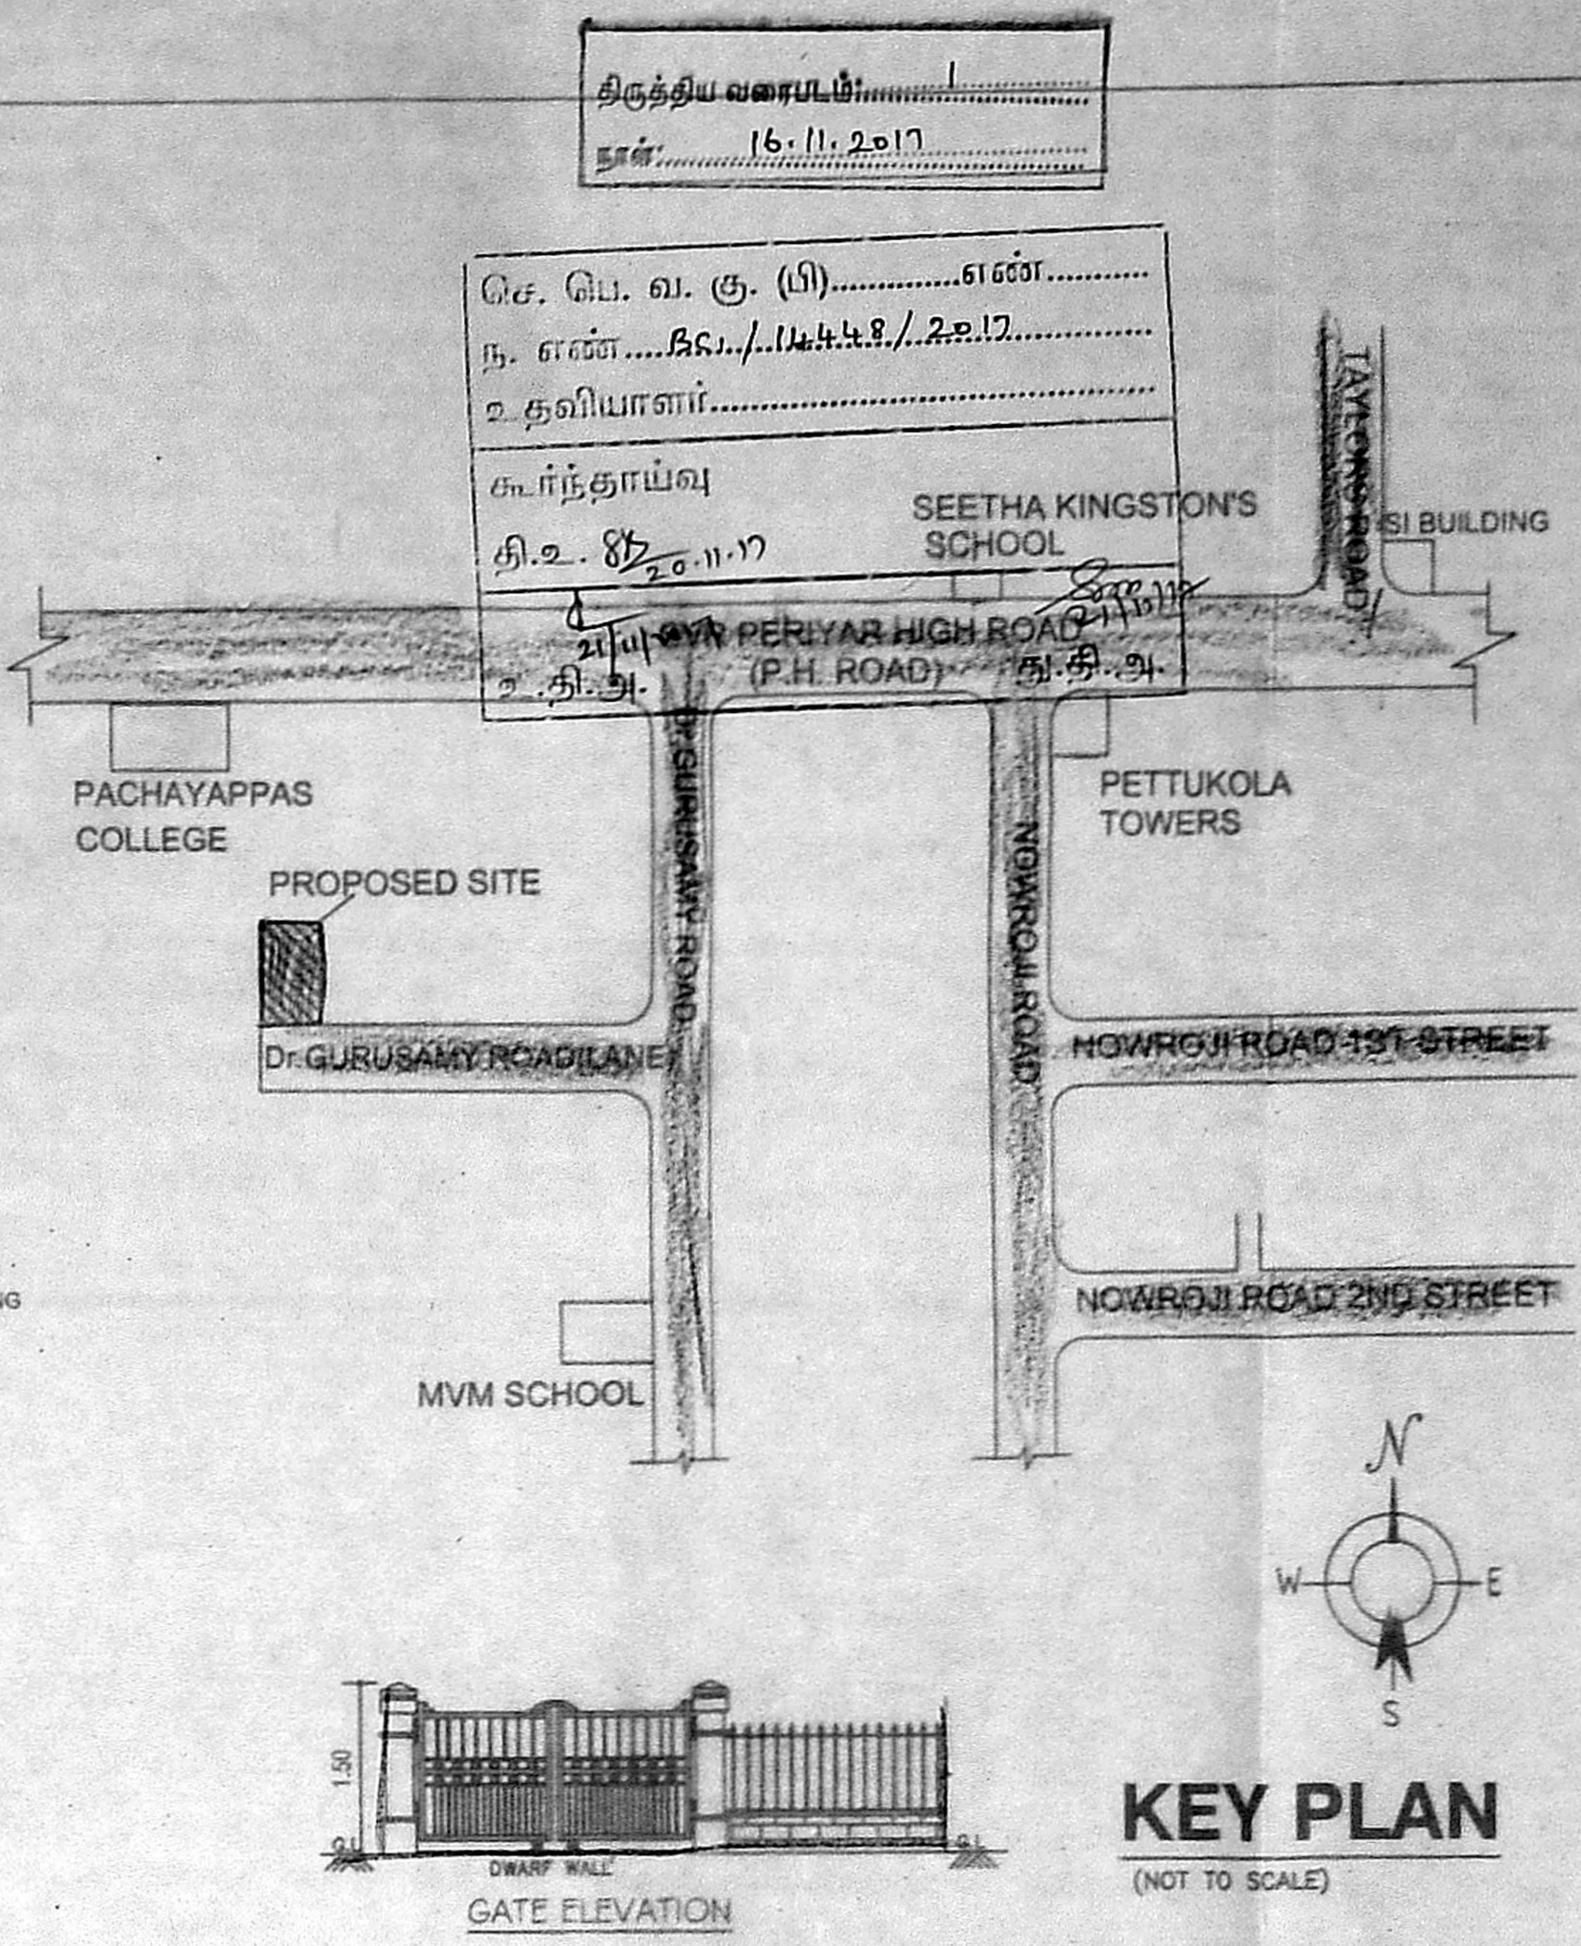 திருத்திய வரைபடம்:................1................
நாள்:..........16.11.2017..........
செ. பெ. வ. கு. (பி)..............எண்...........
ந. எண்....BC1/14448/2017..........
உதவியாளர்..........................................
கூர்ந்தாய்வு
தி.உ. 20.11.17
SEETHA KINGSTON'S
SCHOOL
TAYLORS ROAD
SI BUILDING
EVR PERIYAR HIGH ROAD
(P.H. ROAD)
உ.தி.அ.
து.தி.அ.
PACHAYAPPAS
COLLEGE
PETTUKOLA
TOWERS
PROPOSED SITE
Dr.GURUSAMY ROAD
NOWROJI ROAD
Dr.GURUSAMY ROAD(LANE)
NOWROJI ROAD 1ST STREET
NOWROJI ROAD 2ND STREET
NG
MVM SCHOOL
N
W
E
S
1.50
G.L
G.L
DWARF WALL
GATE ELEVATION
KEY PLAN
(NOT TO SCALE)